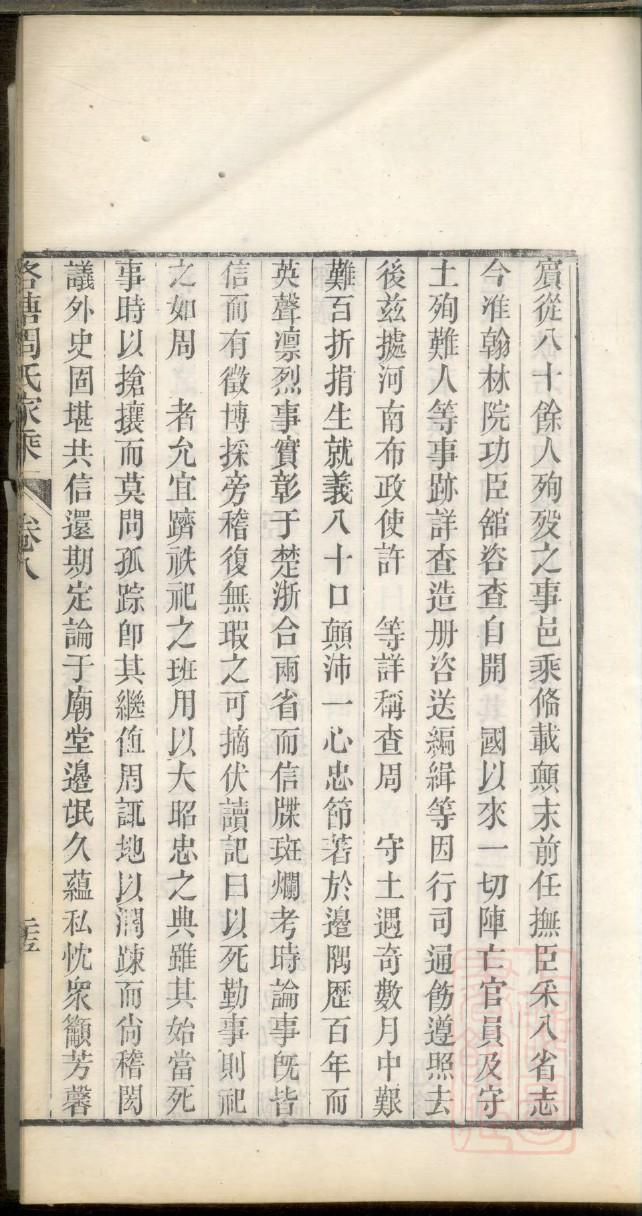 賔從八十餘人殉歿之事邑乘脩載顛末前任撫臣采入省志
今准翰林院功臣舘咨查自開　國以來一切陣亡官員及守
土殉難人等事跡詳查造册咨送編緝等因行司通飭遵照去
後兹據河南布政使許　等詳稱查周　守土遇奇數月中艱
難百折捐生就義八十口顛沛一心忠節若於邊隅歴百年而
英聲凛烈事實彰于楚浙合兩省而信牒斑爛考時論事旣皆
信而有徵博採旁稽復無瑕之可摘伏讀記曰以死勤事則祀
之如周　者允宜躋祑祀之班用以大昭忠之典雖其始當死
事時以搶攘而莫問孤踪卽其繼値周諏地以濶踈而尙稽闋
議外史固堪共信還期定論于廟堂邉氓久蘊私忱衆籲芳馨
洛塘周氏家乘　卷八　三五